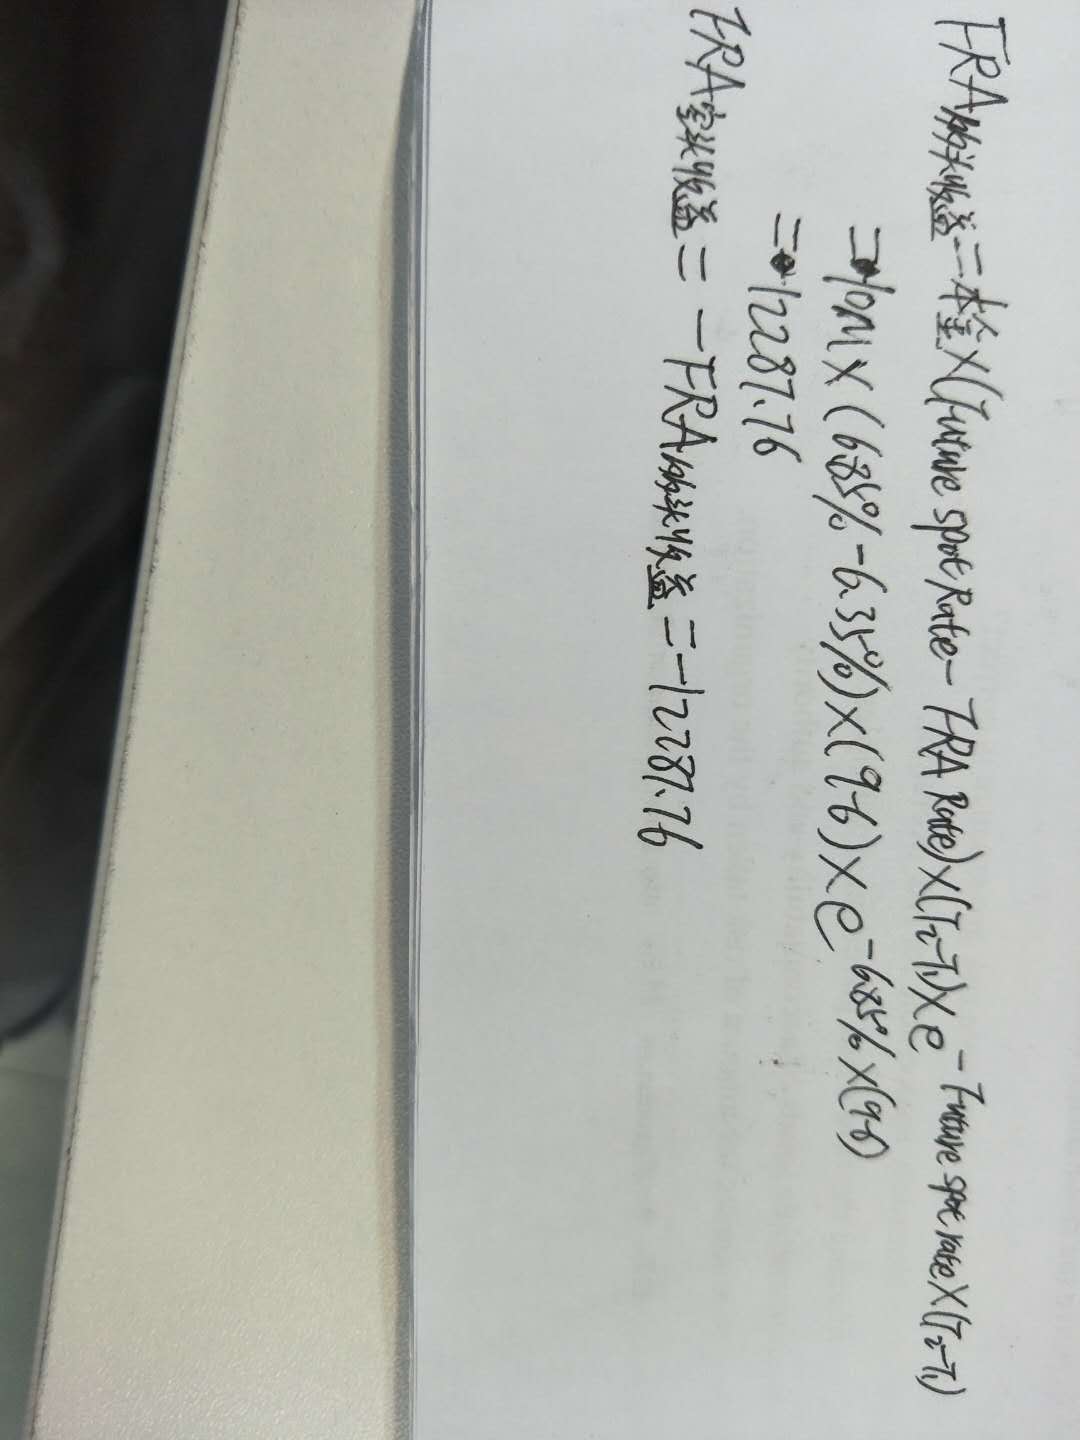 FRA的头收益=本金×(Future spot Rate-FRA Rate)×(T₂-T₁)×e^-Future spot rate×(T₂-T₁)
=10M×(6.85%-6.35%)×(9-6)×e^-6.85%×(9-6)
=12287.76
FRA空头收益=-FRA的头收益=-12287.76